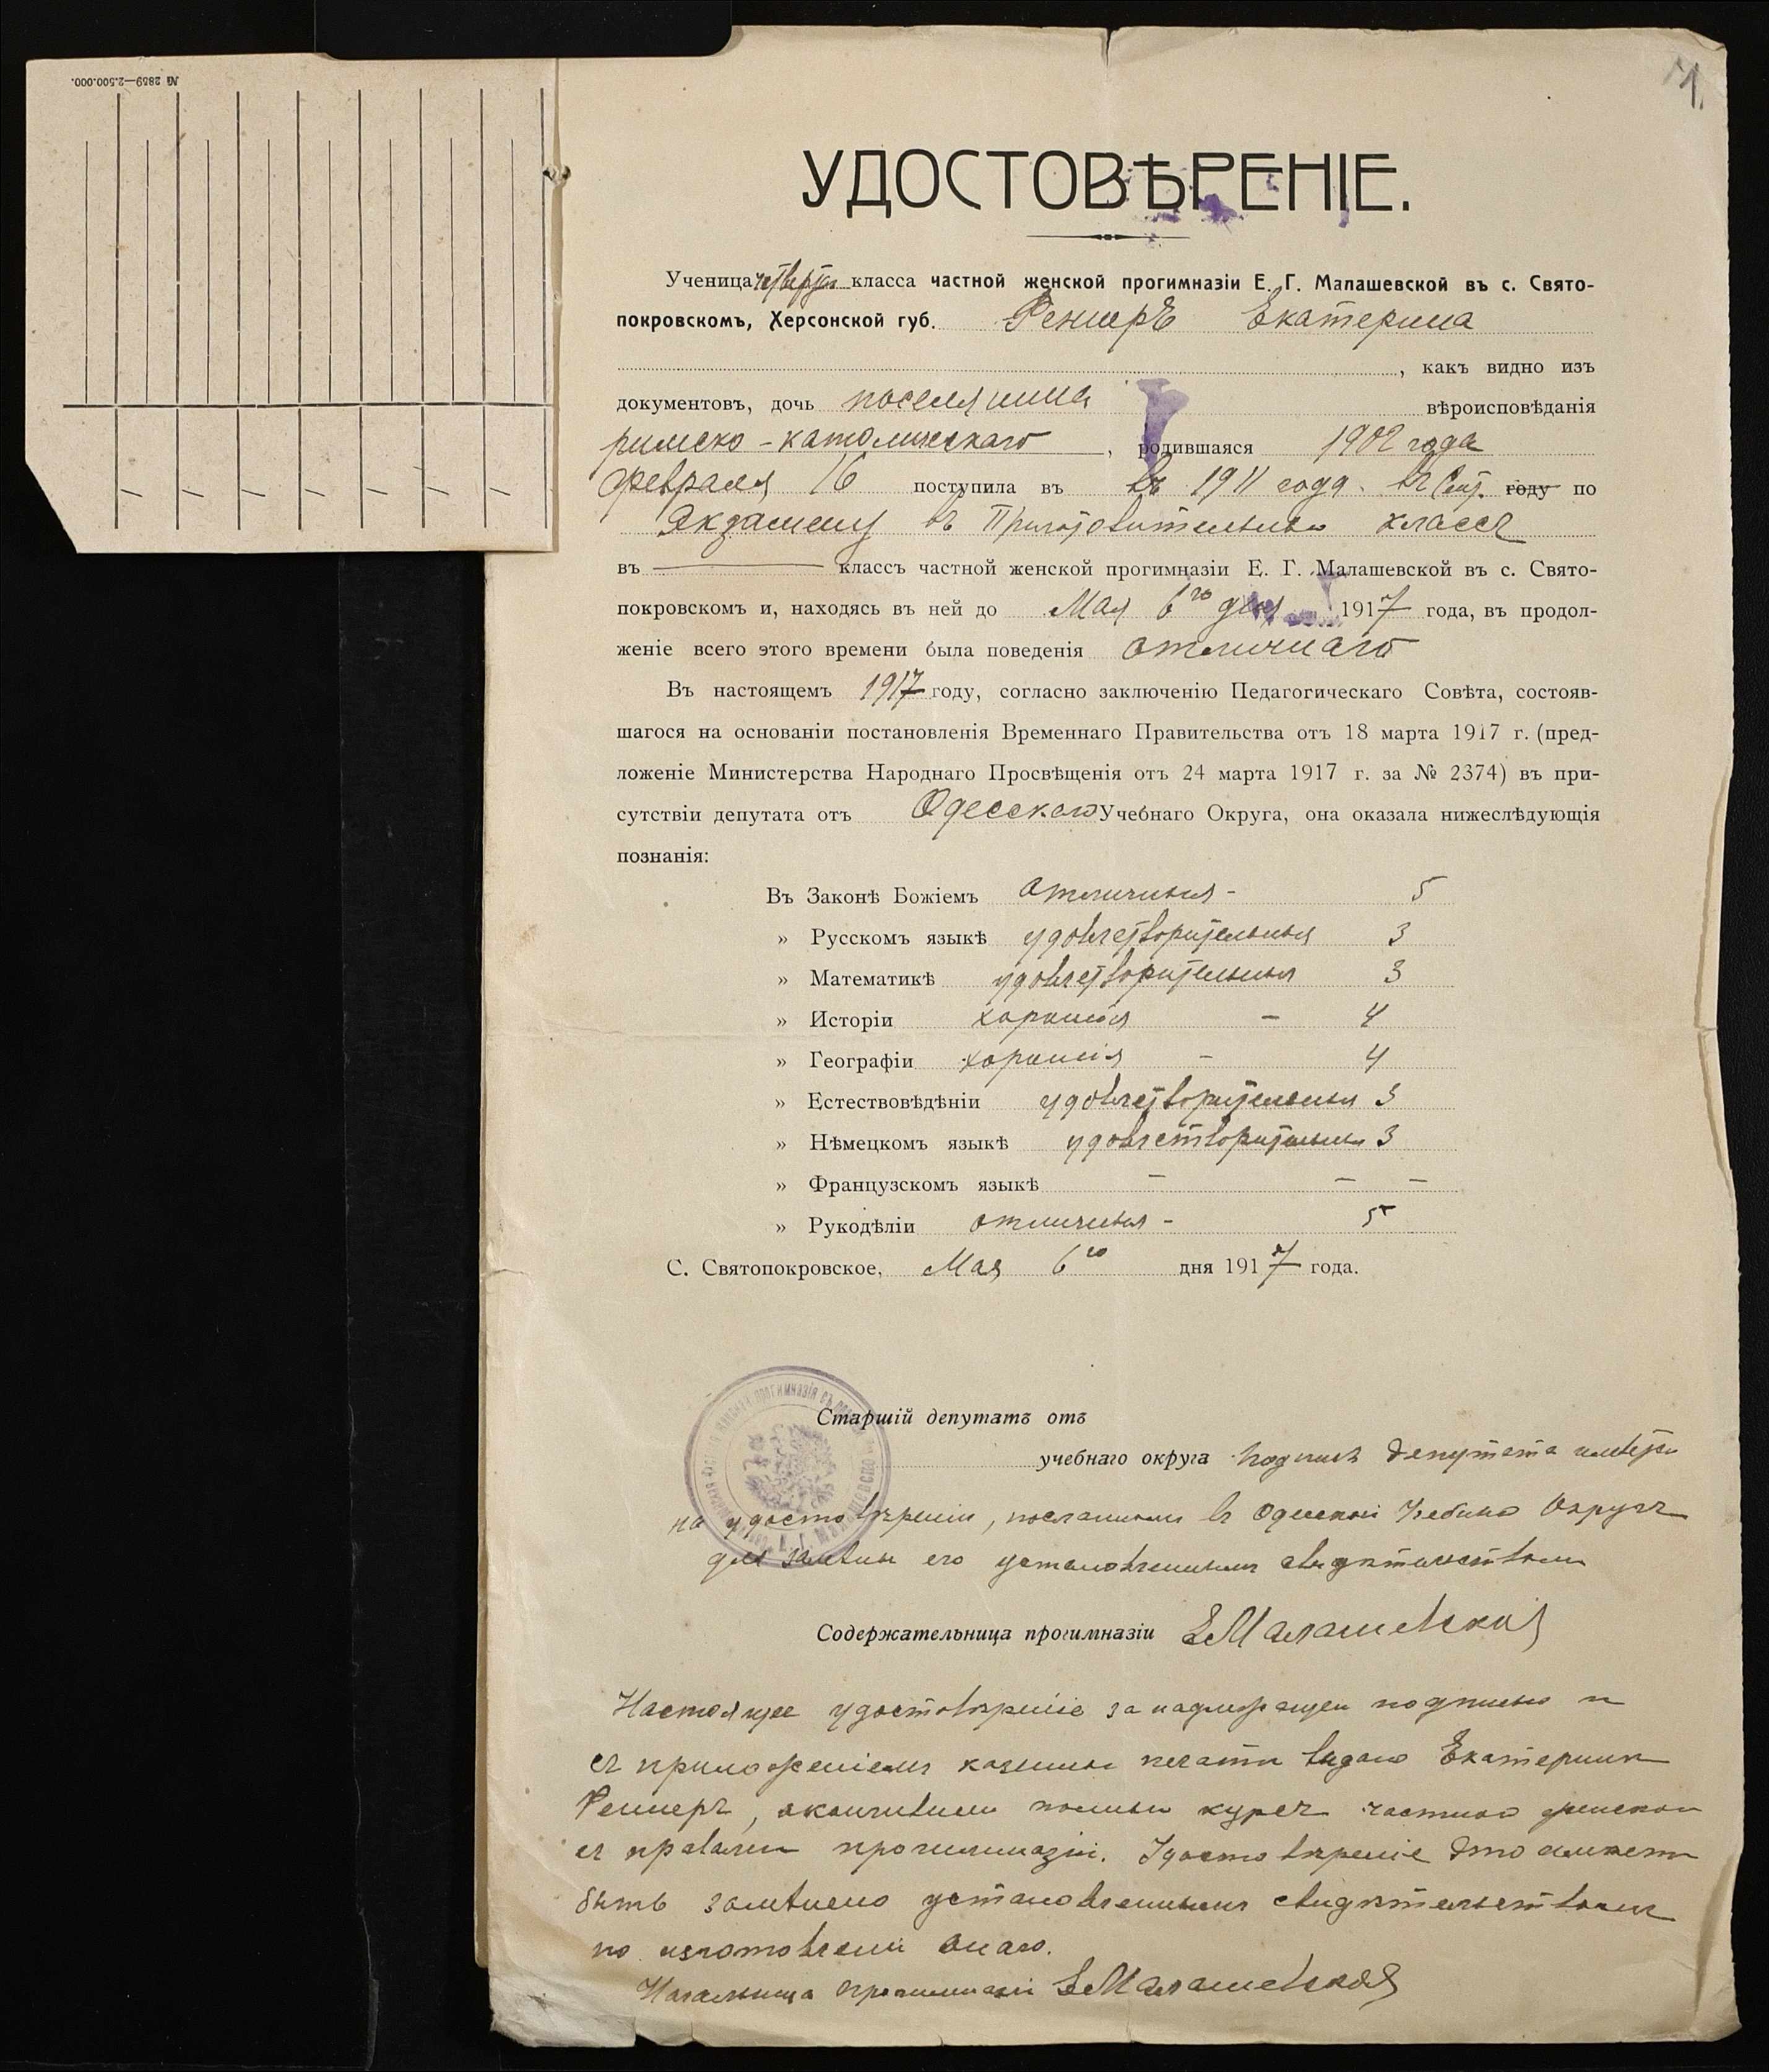 № 2859—2.500.000.
УДОСТОВѢРЕНІЕ.
Ученица четвертаго класса частной женской прогимназіи Е. Г. Малашевской въ с. Свято-
покровскомъ, Херсонской губ. Реннеръ Екатерина
, какъ видно изъ
документовъ, дочь поселянина вѣроисповѣданія
римско-католическаго, родившаяся 1902 года
февраля 16 поступила въ въ 1911 году. въ Сент. году по
Экзамену въ Приготовительный классъ
въ — классъ частной женской прогимназіи Е. Г. Малашевской въ с. Свято-
покровскомъ и, находясь въ ней до Мая 6го дня 1917 года, въ продол-
женіе всего этого времени была поведенія отличнаго
Въ настоящемъ 1917 году, согласно заключенію Педагогическаго Совѣта, состояв-
шагося на основаніи постановленія Временнаго Правительства отъ 18 марта 1917 г. (пред-
ложеніе Министерства Народнаго Просвѣщенія отъ 24 марта 1917 г. за № 2374) въ при-
сутствіи депутата отъ Одесскаго Учебнаго Округа, она оказала нижеслѣдующія
познанія:
Въ Законѣ Божіемъ отличныя - 5
» Русскомъ языкѣ удовлетворительныя 3
» Математикѣ удовлетворительныя 3
» Исторіи хорошія — 4
» Географіи хорошія — 4
» Естествовѣдѣніи удовлетворительныя 3
» Нѣмецкомъ языкѣ удовлетворительныя 3
» Французскомъ языкѣ — — —
» Рукодѣліи отличныя - 5
С. Святопокровское, Мая 6го дня 1917 года.
Старшій депутатъ отъ
учебнаго округа подпись депутата имѣется
на удостовѣреніи, посланномъ въ Одесскій Учебный Округъ
для замѣны его установленнымъ свидѣтельствомъ
Содержательница прогимназіи Е Малашевская
Настоящее удостовѣреніе за надлежащей подписью и
съ приложеніемъ казенной печати выдано Екатеринѣ
Реннеръ, окончившей полный курсъ частной женской
съ правами прогимназіи. Удостовѣреніе это должно
быть замѣнено установленнымъ свидѣтельствомъ
по изготовленіи онаго.
Начальница прогимназіи Е Малашевская